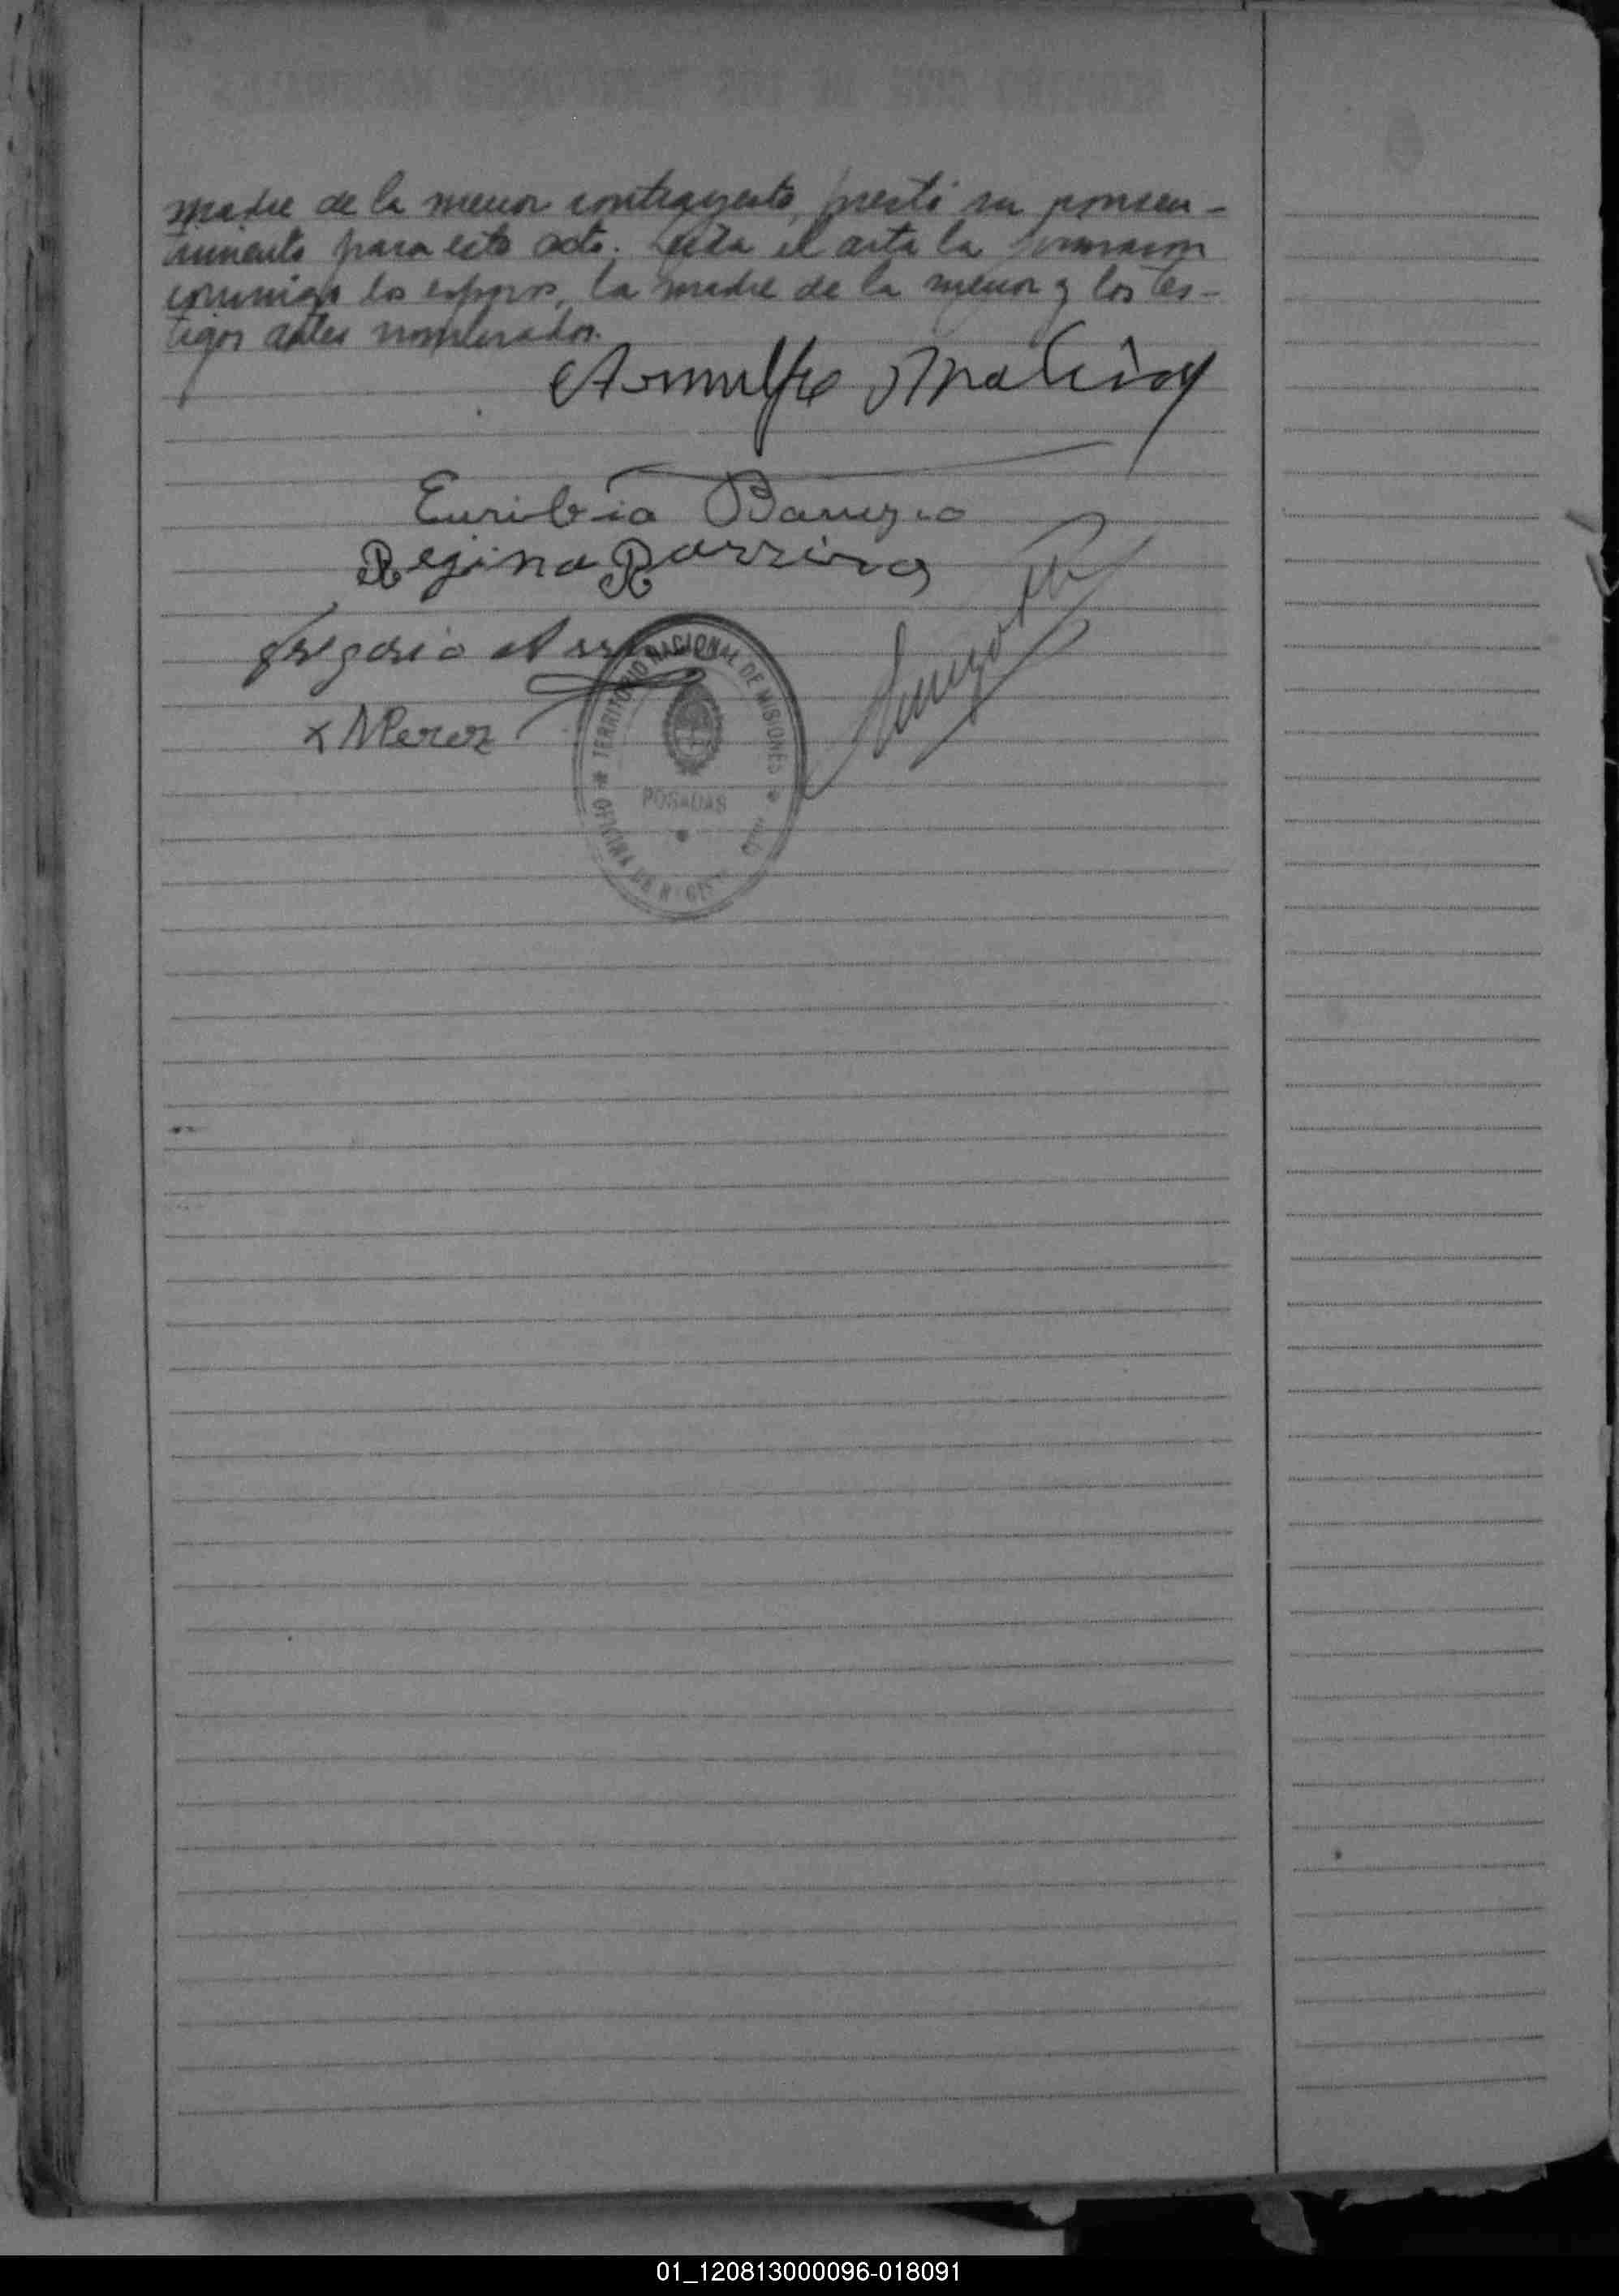 madre de la menor contrayente, prestó su consen-
timiento para este acto. Leída el acta la firmaron
conmigo los esposos, la madre de la menor y los tes-
tigos antes nombrados.
Arnulfo
Euribia
Regina
Gregorio
x N Perez
TERRITORIO NACIONAL DE MISIONES
POSADAS
OFICINA DE
01_120813000096-018091